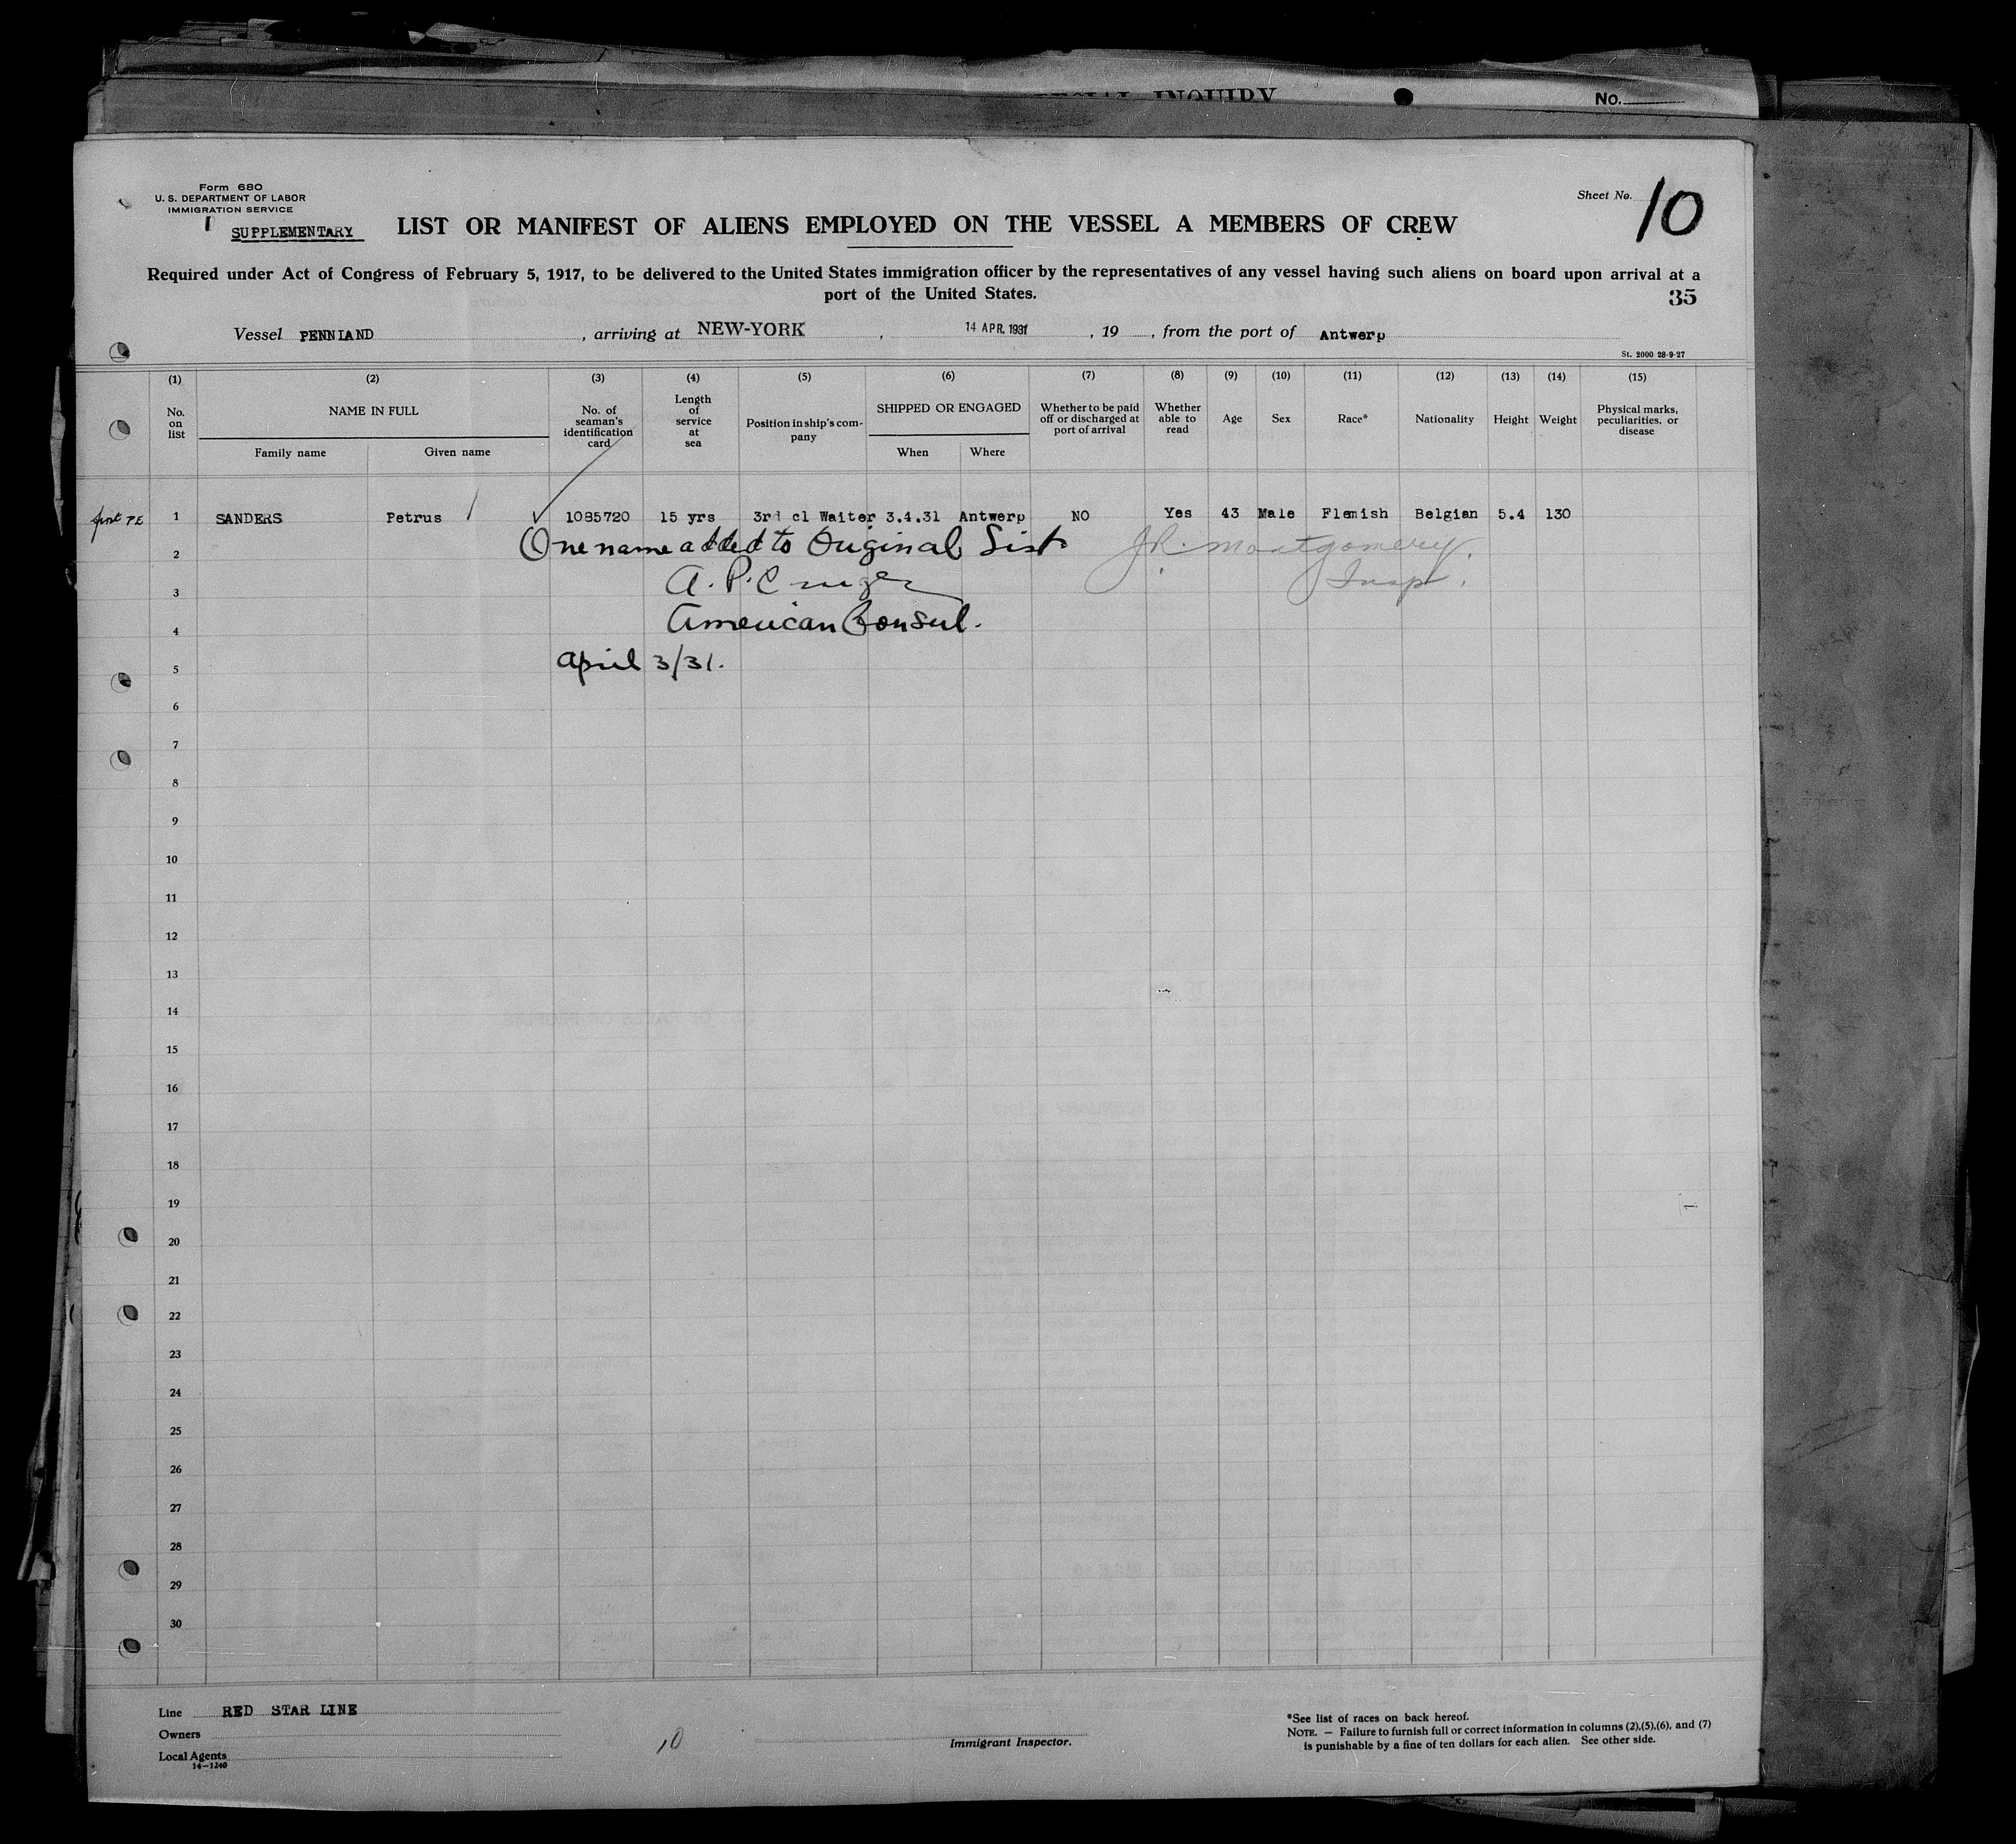 No.
Form 680
U. S. DEPARTMENT OF LABOR
IMMIGRATION SERVICE
Sheet No. 10
SUPPLEMENTARY LIST OR MANIFEST OF ALIENS EMPLOYED ON THE VESSEL A MEMBERS OF CREW
Required under Act of Congress of February 5, 1917, to be delivered to the United States immigration officer by the representatives of any vessel having such aliens on board upon arrival at a
port of the United States.
35
Vessel PENNIAND , arriving at NEW-YORK , 14 APR. 1931 , 19 , from the port of Antwerp
St. 2000 28-9-27
(1) (2) (3) (4) (5) (6) (7) (8) (9) (10) (11) (12) (13) (14) (15)
No. on list
NAME IN FULL
Family name Given name
No. of seaman's identification card
Length of service at sea
Position in ship's com- pany
SHIPPED OR ENGAGED
When Where
Whether to be paid off or discharged at port of arrival
Whether able to read
Age Sex Race* Nationality Height Weight
Physical marks, peculiarities, or disease
1 SANDERS Petrus 1085720 15 yrs 3rd cl Waiter 3.4.31 Antwerp NO Yes 43 Male Flemish Belgian 5.4 130
One name added to Original List J.R. Montgomery.
2
Insp.
3 A. P. Cruger
4 American Consul.
5 April 3/31.
6
7
8
9
10
11
12
13
14
15
16
17
18
19
20
21
22
23
24
25
26
27
28
29
30
Line RED STAR LINE
Owners
Local Agents
14-1240
10
Immigrant Inspector.
*See list of races on back hereof.
NOTE. — Failure to furnish full or correct information in columns (2),(5),(6), and (7)
is punishable by a fine of ten dollars for each alien. See other side.